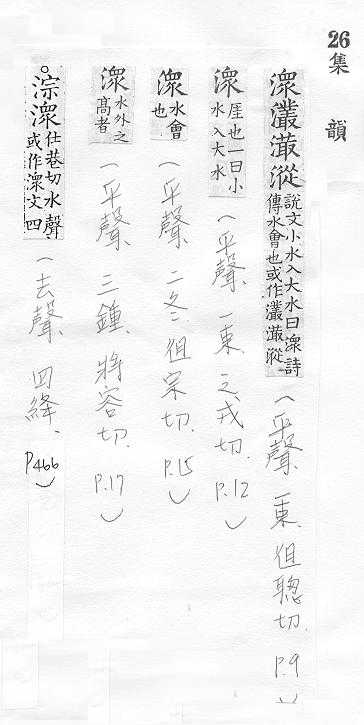 26集韻
潀灇灂漎說文小水入大水曰潀詩傳水會也或作灇灂漎(平聲、一東、徂聰切、P.9)
潀厓也一曰小水入大水(平聲、一東、之戎切、P.12)
潀水會也(平聲、二冬、徂宗切、P.15)
潀水外之高者(平聲、三鍾、將容切、P.17)
。淙潀仕巷切水聲或作潀文四(去聲、四絳、P466)